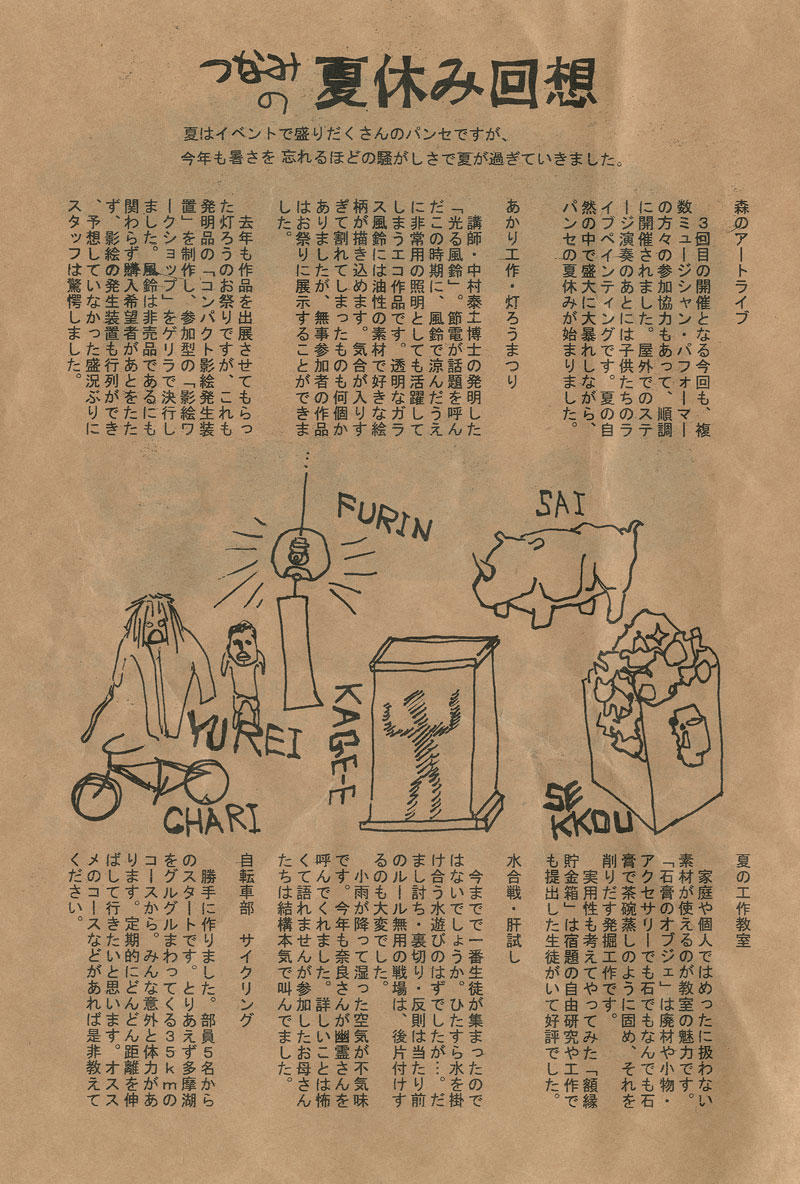 つなみの 夏休み回想
夏はイベントで盛りだくさんのパンセですが、
今年も暑さを 忘れるほどの騒がしさで夏が過ぎていきました。
森のアートライブ
３回目の開催となる今回も、複
数ミュージシャン・パフォーマー
の方々の参加協力もあって、順調
に開催されました。屋外でのステ
ージ演奏のあとには子供たちのラ
イブペインティングです。夏の自
然の中で盛大に大暴れしながら、
パンセの夏休みが始まりました。
あかり工作・灯ろうまつり
講師・中村泰士博士の発明した
「光る風鈴」。節電が話題を呼ん
だこの時期に、風鈴で涼んだうえ
に非常用の照明としても活躍して
しまうエコ作品です。透明なガラ
ス風鈴には油性の素材で好きな絵
柄が描き込めます。気合が入りす
ぎて割れてしまったものも何個か
ありましたが、無事参加者の作品
はお祭りに展示することができま
した。
去年も作品を出展させてもらっ
た灯ろうのお祭りですが、これも
発明品の「コンパクト影絵発生装
置」を制作し、参加型の「影絵ワ
ークショップ」をゲリラで決行し
ました。風鈴は非売品であるにも
関わらず購入希望者があとをたた
ず、影絵の発生装置も行列ができ
、予想していなかった盛況ぶりに
スタッフは驚愕しました。
…
FURIN
SAI
YUREI
KAGE-E
CHARI
SE
KKOU
夏の工作教室
家庭や個人ではめったに扱わない
素材が使えるのが教室の魅力です。
「石膏のオブジェ」は廃材や小物・
アクセサリーでも石でもなんでも石
膏で茶碗蒸しのように固め、それを
削りだす発掘工作です。
実用性も考えてやってみた「額縁
貯金箱」は宿題の自由研究や工作で
も提出した生徒がいて好評でした。
水合戦・肝試し
今までで一番生徒が集まったので
はないでしょうか。ひたすら水を掛
け合う水遊びのはずでしたが…。だ
まし討ち・裏切り・反則は当たり前
のルール無用の戦場は、後片付けす
るのも大変でした。
小雨が降って湿った空気が不気味
です。今年も奈良さんが幽霊さんを
呼んでくれました。詳しいことは怖
くて語れませんが参加したお母さん
たちは結構本気で叫んでました。
自転車部 サイクリング
勝手に作りました。部員５名から
のスタートです。とりあえず多摩湖
をグルグルまわってくる３５ｋｍの
コースから。みんな意外と体力があ
ります。定期的にどんどん距離を伸
ばして行きたいと思います。オスス
メのコースなどがあれば是非教えて
ください。